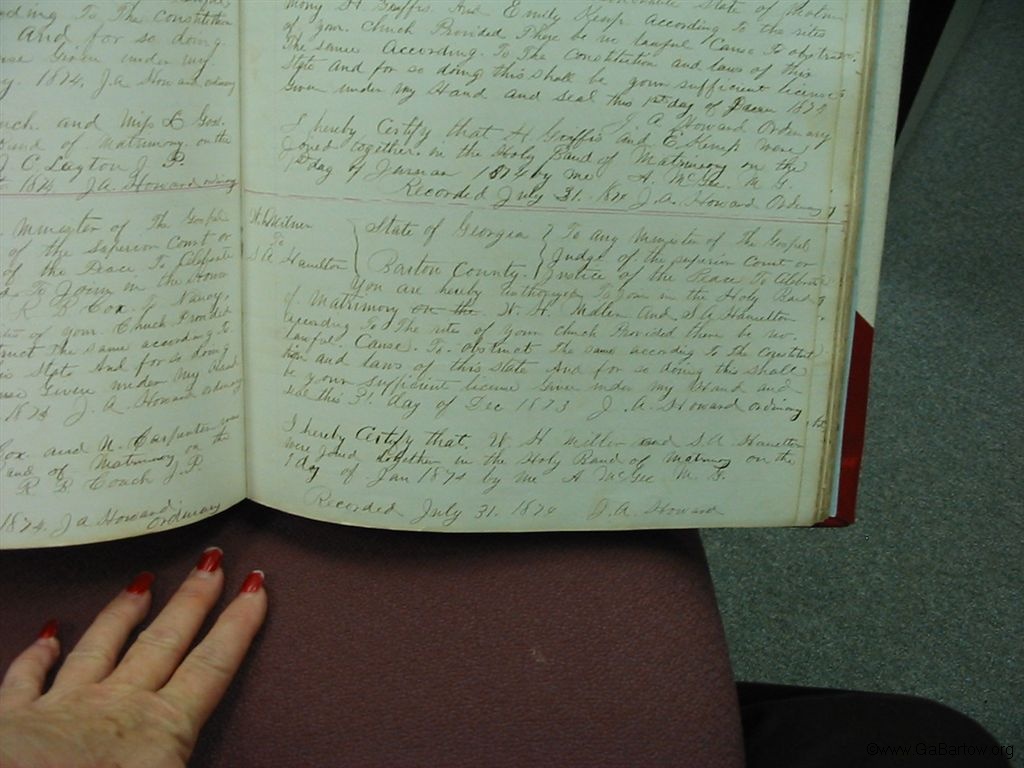 ding To The Constitution
And for so doing.
nse Given under my
y. 1874, J.a. Howard ordinary
uch. and Miss E Cox.
Band of Matrimony. on the
J C Layton J. P.
1874 J.A. Howard ordinary
Minister of The Gospel
of the Superior Court or
of the Peace To Celebrate
To Join in the
R B Cox. To Nancy,
of your Church Provided
ruct The same according to
is State And for so doing
Given under My Hand
1874 J. A. Howard ordinary
Cox. and N. Carpenter were
and of Matrimony on the
R B Couch J.P.
1874. J a Howard
Ordinary
State of
mony H Griffis. And Emily Kemp According To the rites
of your Church Provided There be no lawful Cause To obstruct
The same According. To The Constitution and laws of this
State and for so doing this shall be your sufficient license
Given under My Hand and Seal this 1st day of 1874
J. A. Howard Ordinary
I hereby Certify that H Griffis and E Kemp were
Joined together. in the Holy Band of Matrimony on the
1st day of 1874 by me A. McGee. M. G.
Recorded July 31. 1874 J.A. Howard Ordinary
To
S A Hamilton
State of Georgia
Bartow County.
To any Minister of The Gospel
Judge of the superior Court or
Justice of the Peace To Celebrate
You are hereby Authorized To Join in the Holy Band
of Matrimony on the W. H. And, S.A Hamilton
According To The rites of your church Provided there be no.
lawful Cause. To. obstruct The same according To The Constitut
tion and laws of this state And for so doing this shall
be your sufficient license Given under my Hand and
seal this 31. day of Dec 1873 J. A. Howard ordinary
I hereby Certify that. W H and S.A Hamilton
were joined together in the Holy Band of Matrimony on the 1st
day of Jan 1874 by me A McGee M. G.
Recorded July 31. 1874 J.A. Howard
©www.GaBartow.org